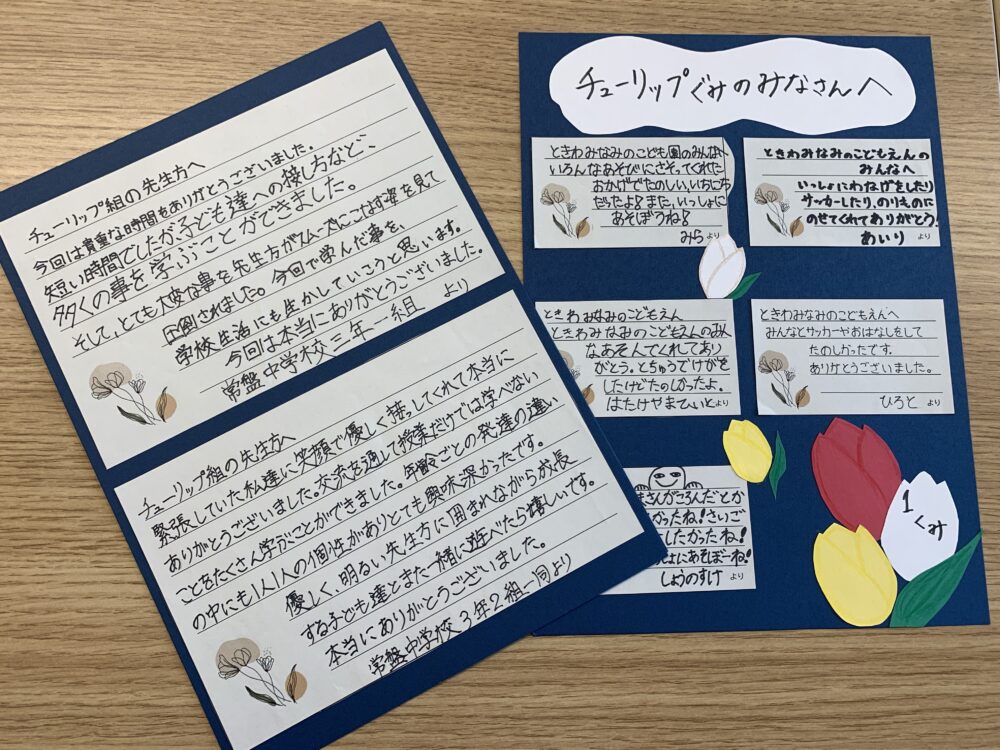 チューリップ組の先生方へ
今回は貴重なお時間をありがとうございました。
短い時間でしたが、子ども達への接し方など、
多くの事を学ぶことができました。
そして、とても大変な事を先生方がスムーズにこなす姿を見て
圧倒されました。今回で学んだ事を、
学校生活にも生かしていこうと思います。
今回は本当にありがとうございました。
常盤中学校三年一組 より
チューリップ組の先生方へ
緊張していた私達に笑顔で優しく接してくれて本当に
ありがとうございました。交流を通して授業だけでは学べない
ことをたくさん学ぶことができました。年齢ごとの発達の違い
の中にも1人1人の個性がありとても興味深かったです。
優しく、明るい先生方に囲まれながら成長
する子ども達とまた一緒に遊べたら嬉しいです。
本当にありがとうございました。
常盤中学校3年2組一同より
チューリップぐみのみなさんへ
ときわみなみのこども園のみんなへ
いろんなあそびにさそってくれた
おかげでたのしい、いちにち
だったよ!また、いっしょに
あそぼうね!
みら より
ときわみなみのこどもえんの
みんなへ
いっしょにわなげをしたり
サッカーしたり、のりものに
のせてくれてありがとう!
あいり より
ときわみなみのこどもえん
ときわみなみのこどもえんのみん
なあそんでくれてあり
がとう。とちゅうでけがを
したけどたのしかったよ。
はたけやまていと より
ときわみなみのこどもえんへ
みんなとサッカーやおはなしをして
たのしかったです。
ありがとうございました。
ひろと より
まさんがころんだとか
かったね!さいご
としたかったね!
にあそぼーね!
しょうのすけ より
1くみ